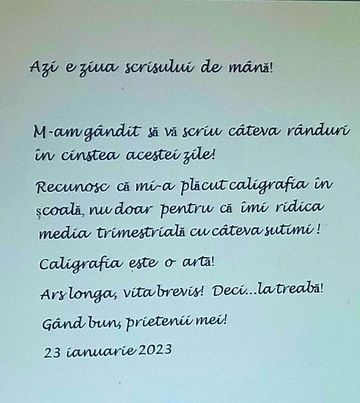 Azi e ziua scrisului de mână!
M-am gândit să vă scriu câteva rânduri
în cinstea acestei zile!
Recunosc că mi-a plăcut caligrafia în
școală, nu doar pentru că îmi ridica
media trimestrială cu câteva sutimi!
Caligrafia este o artă!
Ars longa, vita brevis! Deci...la treabă!
Gând bun, prietenii mei!
23 ianuarie 2023